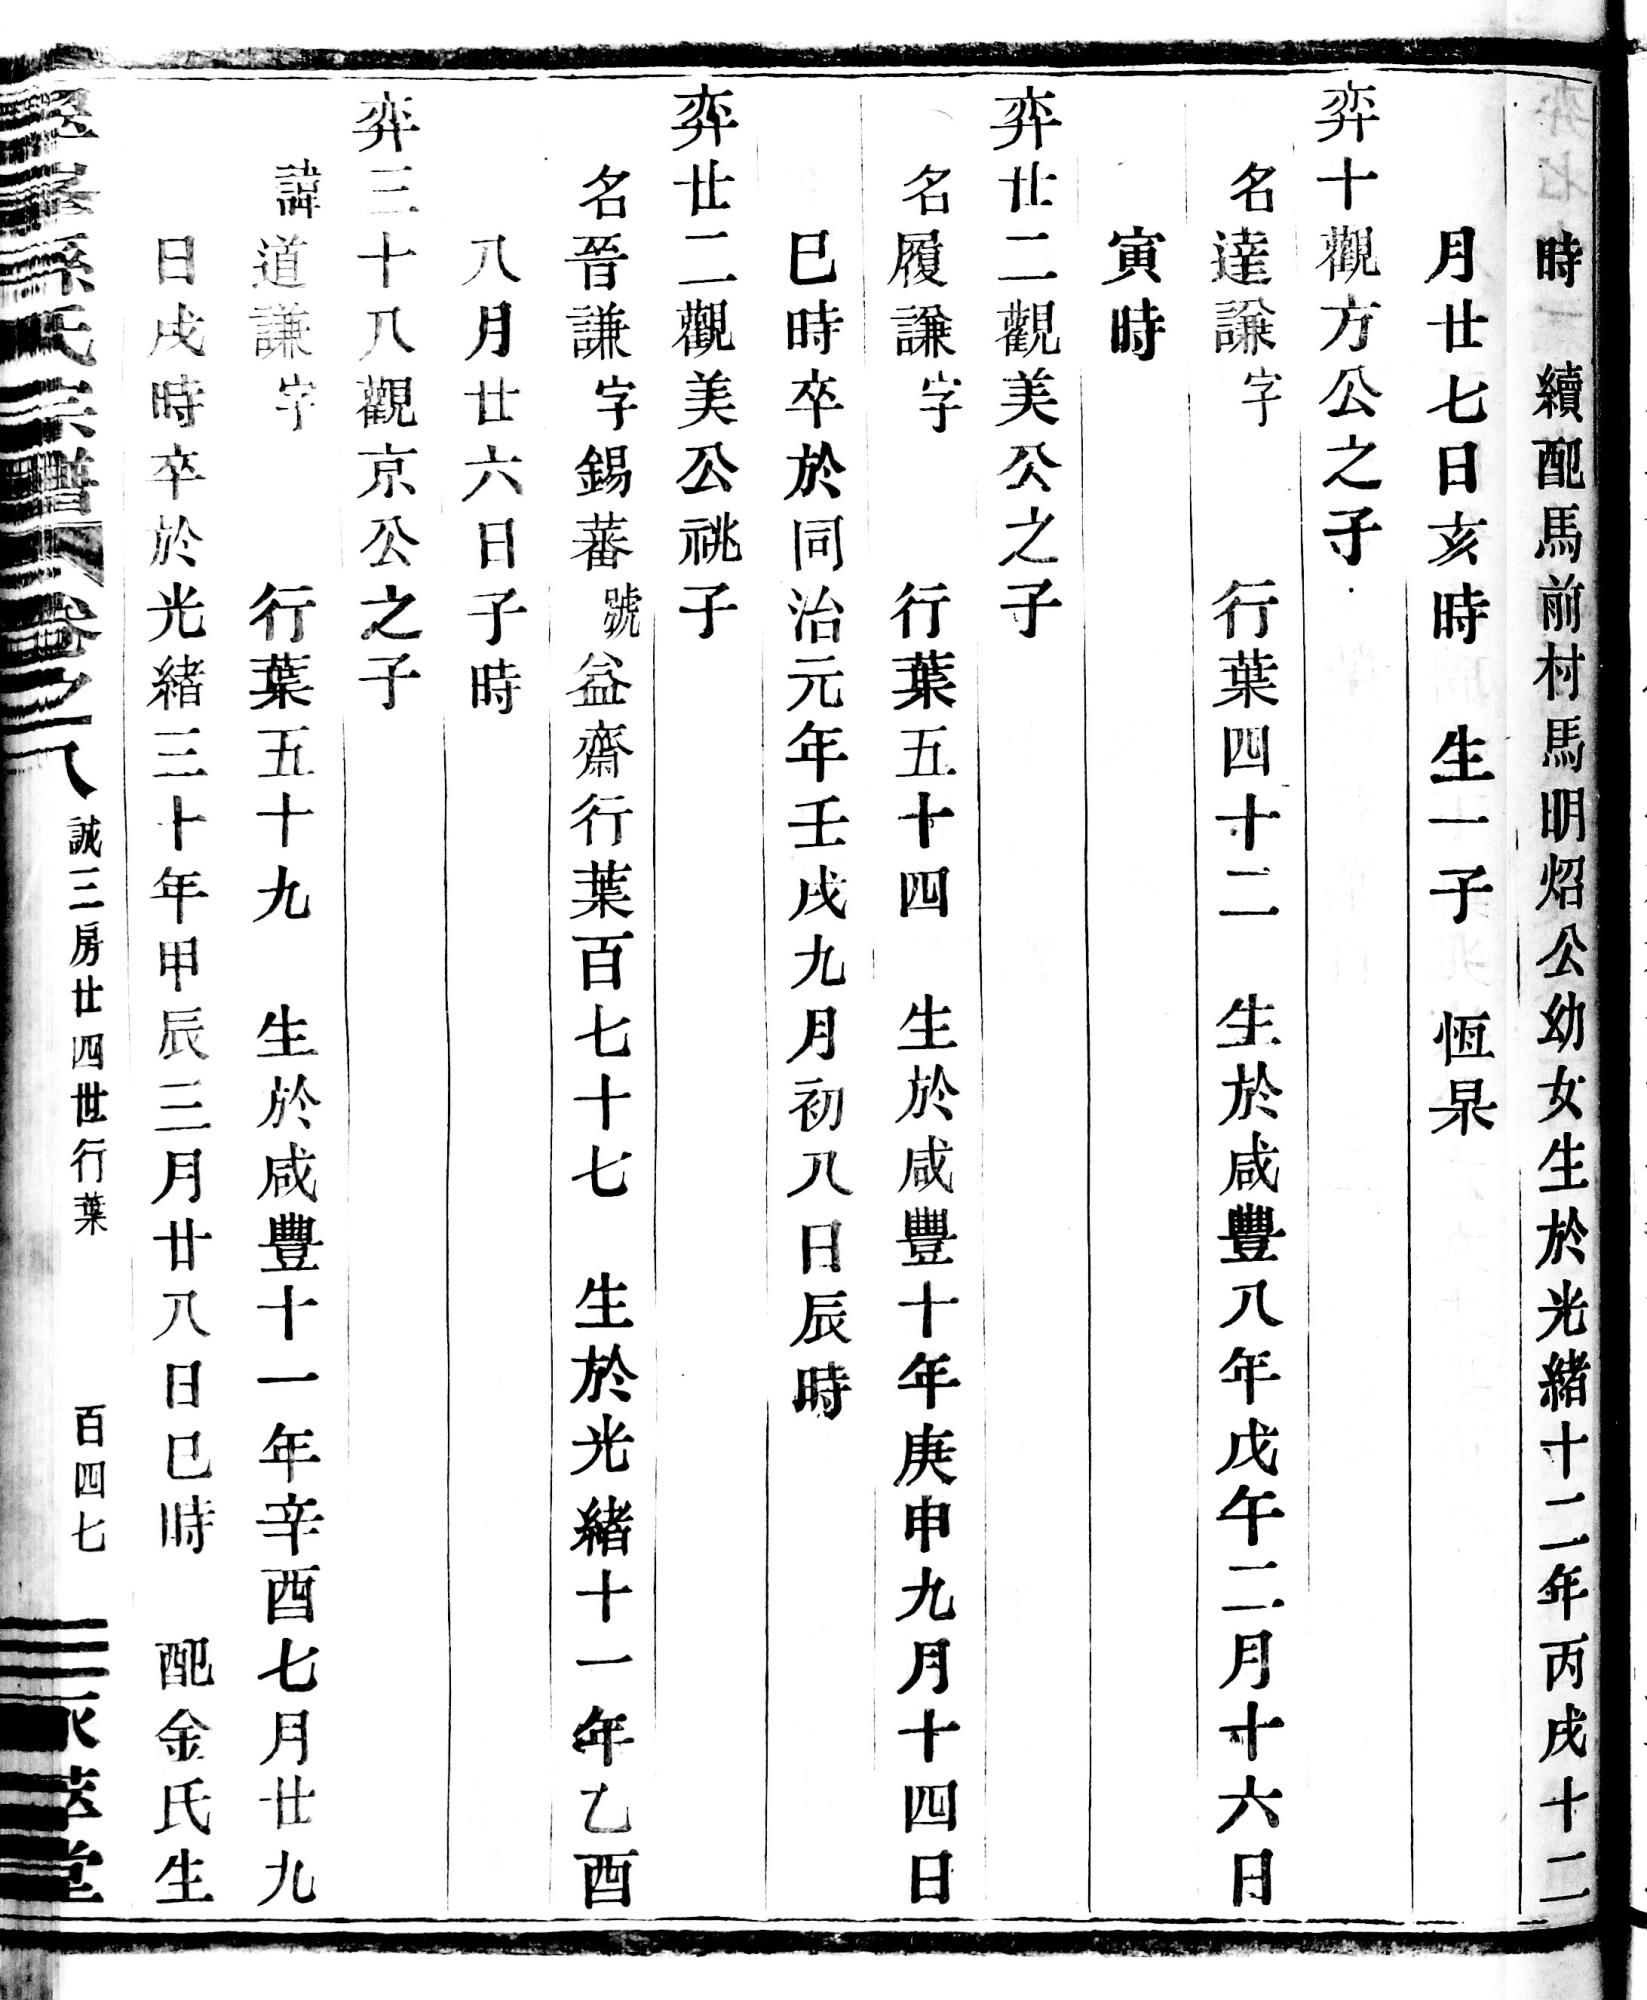 時　續配馬前村馬明炤公幼女生於光緒十二年丙戌十二
月廿七日亥時　生一子　恆杲
弈十觀方公之子
名達謙字　　行葉四十二　生於咸豐八年戊午二月十六日
寅時
弈廿二觀美公之子
名履謙字　　行葉五十四　生於咸豐十年庚申九月十四日
巳時卒於同治元年壬戌九月初八日辰時
弈廿二觀美公祧子
名晉謙字錫蕃號益齋行葉百七十七　生於光緒十一年乙酉
八月廿六日子時
弈三十八觀京公之子
諱道謙字　　行葉五十九　生於咸豐十一年辛酉七月廿九
日戌時卒於光緒三十年甲辰三月廿八日巳時　配金氏生
孫氏宗譜　卷之八　誠三房廿四世行葉　百四七　萃堂